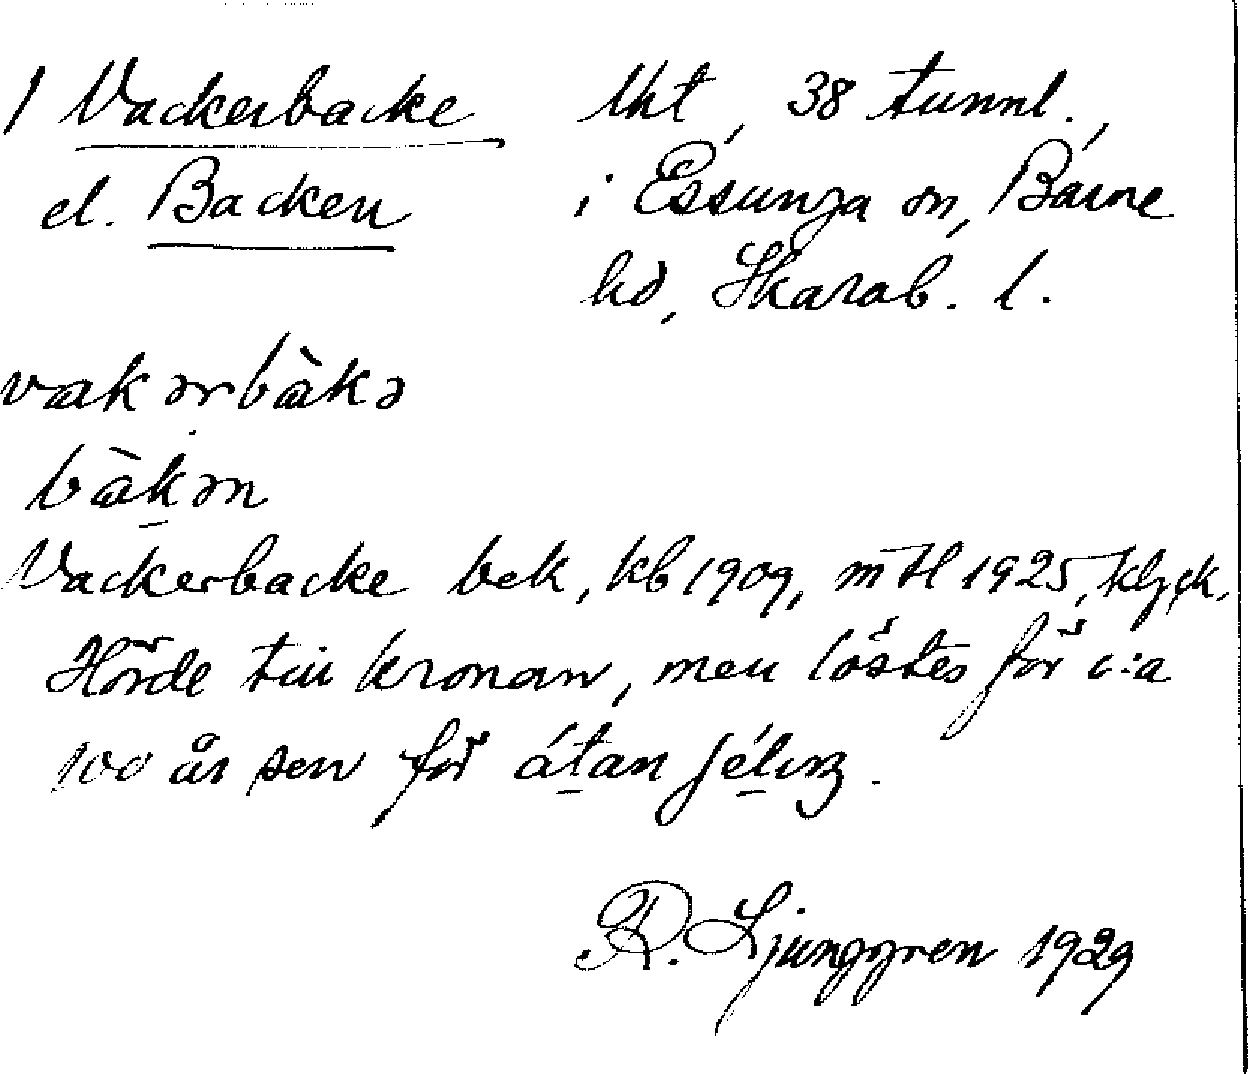 1 Vackerbacke lht, 38 tunnl.,
el. Backen i Essunga sn, Barne
hd, Skarab. l.
vakərbàkə
bàkən
Vackerbacke bek, kb 1909, mtl 1925,
Hörde till kronan, men löstes för c:a
100 år sen för átan
R. Ljunggren 1929